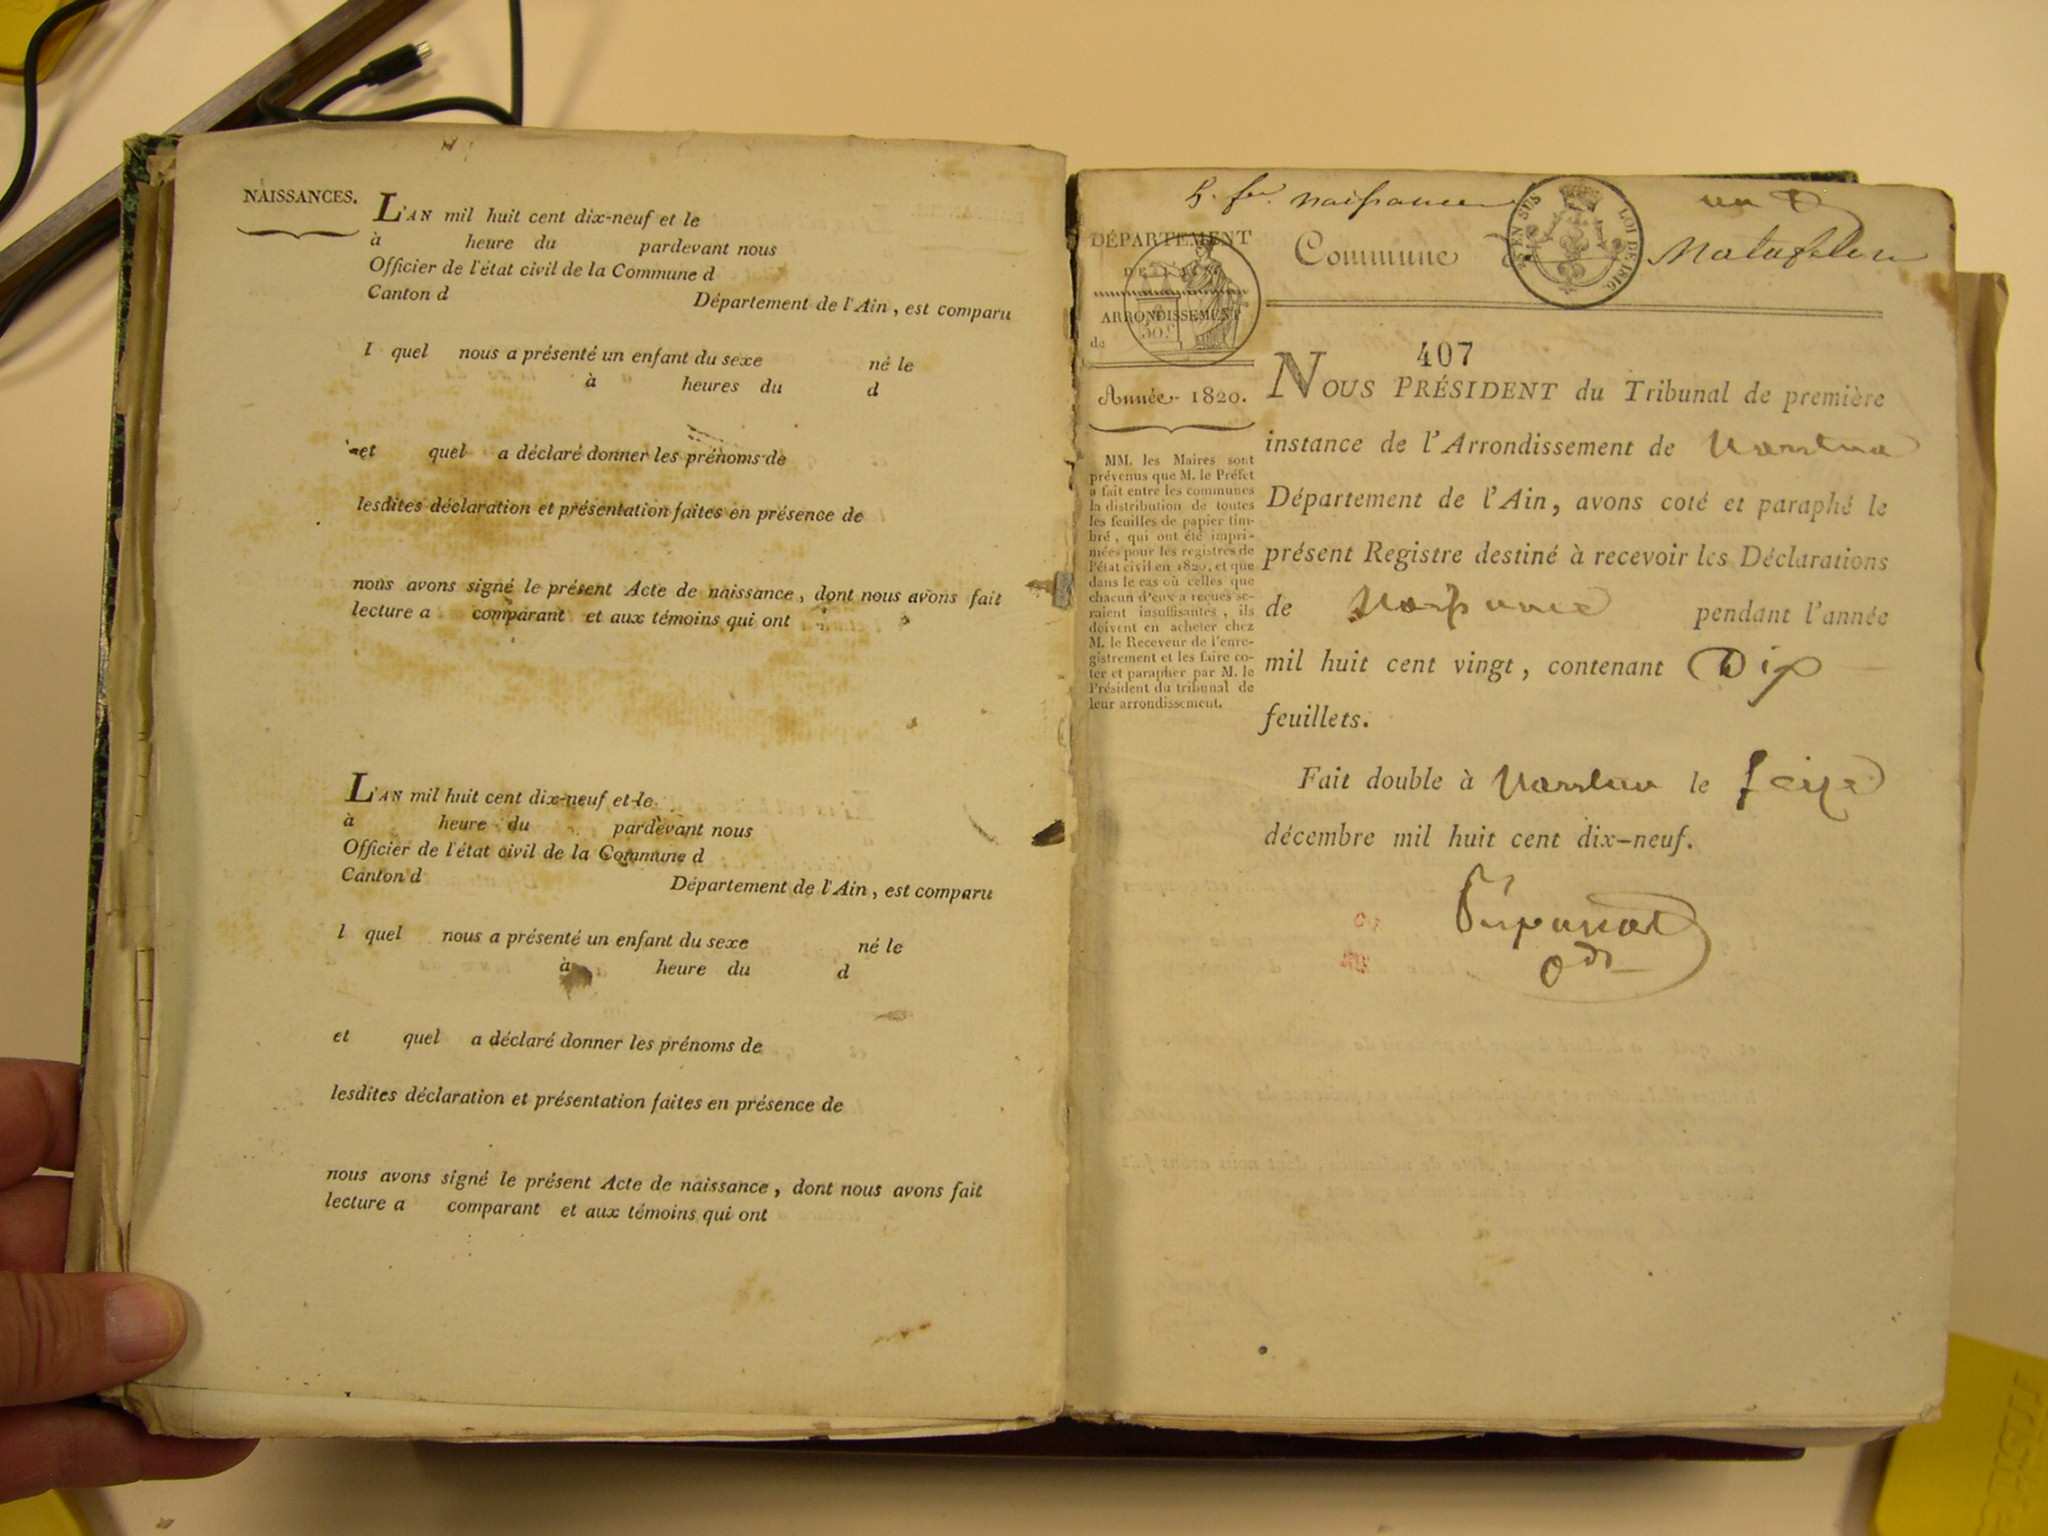 NAISSANCES.
L'AN mil huit cent dix-neuf et le
à heure du pardevant nous
Officier de l'état civil de la Commune d
Canton d Département de l'Ain, est comparu
l quel nous a présenté un enfant du sexe né le
à heures du d
et quel a déclaré donner les prénoms de
lesdites déclaration et présentation faites en présence de
nous avons signé le présent Acte de naissance, dont nous avons fait
lecture a comparant et aux témoins qui ont
L'AN mil huit cent dix-neuf et le
à heure du pardevant nous
Officier de l'état civil de la Commune d
Canton d Département de l'Ain, est comparu
l quel nous a présenté un enfant du sexe né le
à heure du d
et quel a déclaré donner les prénoms de
lesdites déclaration et présentation faites en présence de
nous avons signé le présent Acte de naissance, dont nous avons fait
lecture a comparant et aux témoins qui ont
naissances
un
DÉPARTEMENT
DE L'AIN
ARRONDISSEMENT
de
Année 1820.
MM. les Maires sont
prévenus que M. le Préfet
a fait entre les communes
la distribution de toutes
les feuilles de papier tim-
bré, qui ont été impri-
mées pour les registres de
l'état civil en 1820, et que
dans le cas où celles que
chacun d'eux a reçues se-
raient insuffisantes, ils
doivent en acheter chez
M. le Receveur de l'enre-
gistrement et les faire co-
ter et parapher par M. le
Président du tribunal de
leur arrondissement.
Commune d Matafelon
EN SUS
LOI DE 1816
407
NOUS PRÉSIDENT du Tribunal de première
instance de l'Arrondissement de Nantua
Département de l'Ain, avons coté et paraphé le
présent Registre destiné à recevoir les Déclarations
de Naissances pendant l'année
mil huit cent vingt, contenant Dix
feuillets.
Fait double à Nantua le seize
décembre mil huit cent dix-neuf.